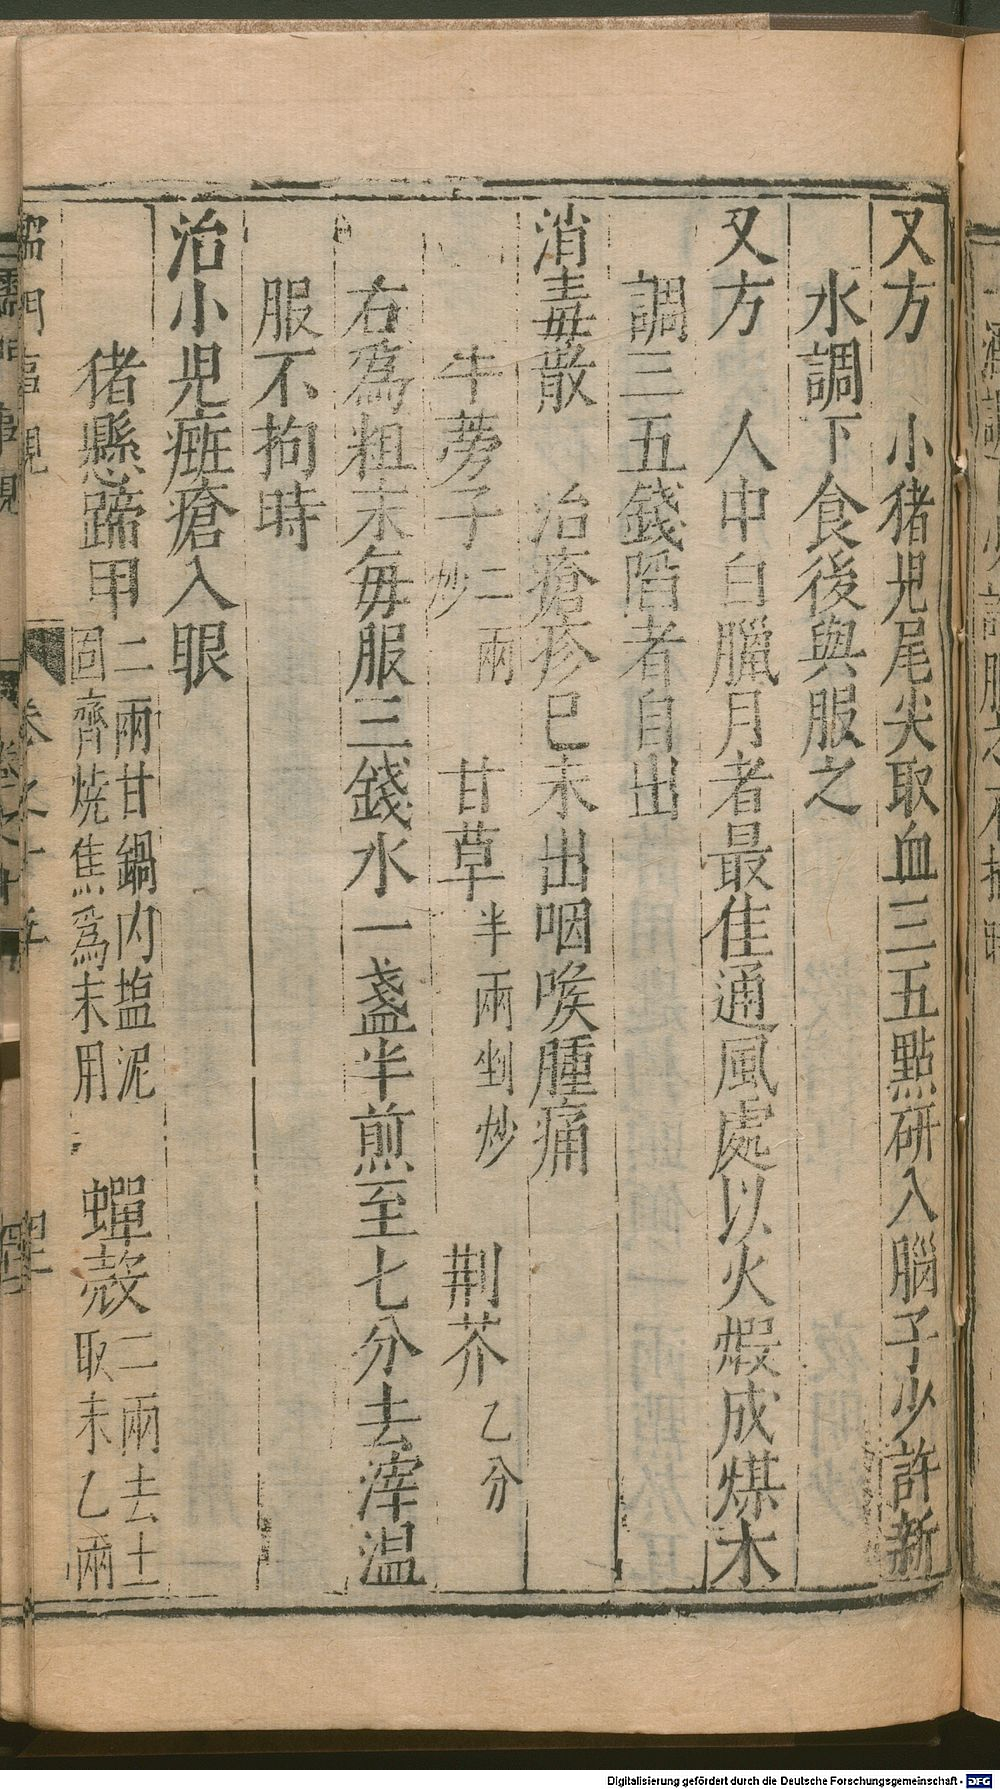 又方 小猪児尾尖取血三五點研入腦子少許新
水調下食後與服之
又方 人中白臘月者最佳通風處以火煆成煤木
調三五錢陷者自出
消毒散 治瘡疹已未出咽喉腫痛
牛蒡子 二兩 炒 甘草 半兩 剉炒 荆芥 乙分
右爲粗末每服三錢水一盞半煎至七分去滓温
服不拘時
治小児斑瘡入眼
猪懸蹄甲 二兩甘鍋内塩泥 固齊燒焦爲末用 蟬殼 二兩去土 取末乙兩
Digitalisierung gefördert durch die Deutsche Forschungsgemeinschaft - DFG